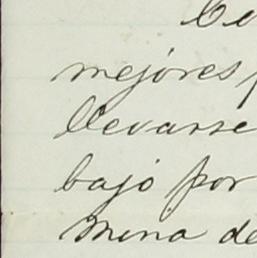 mejores
llevarse
bajo por
mina de